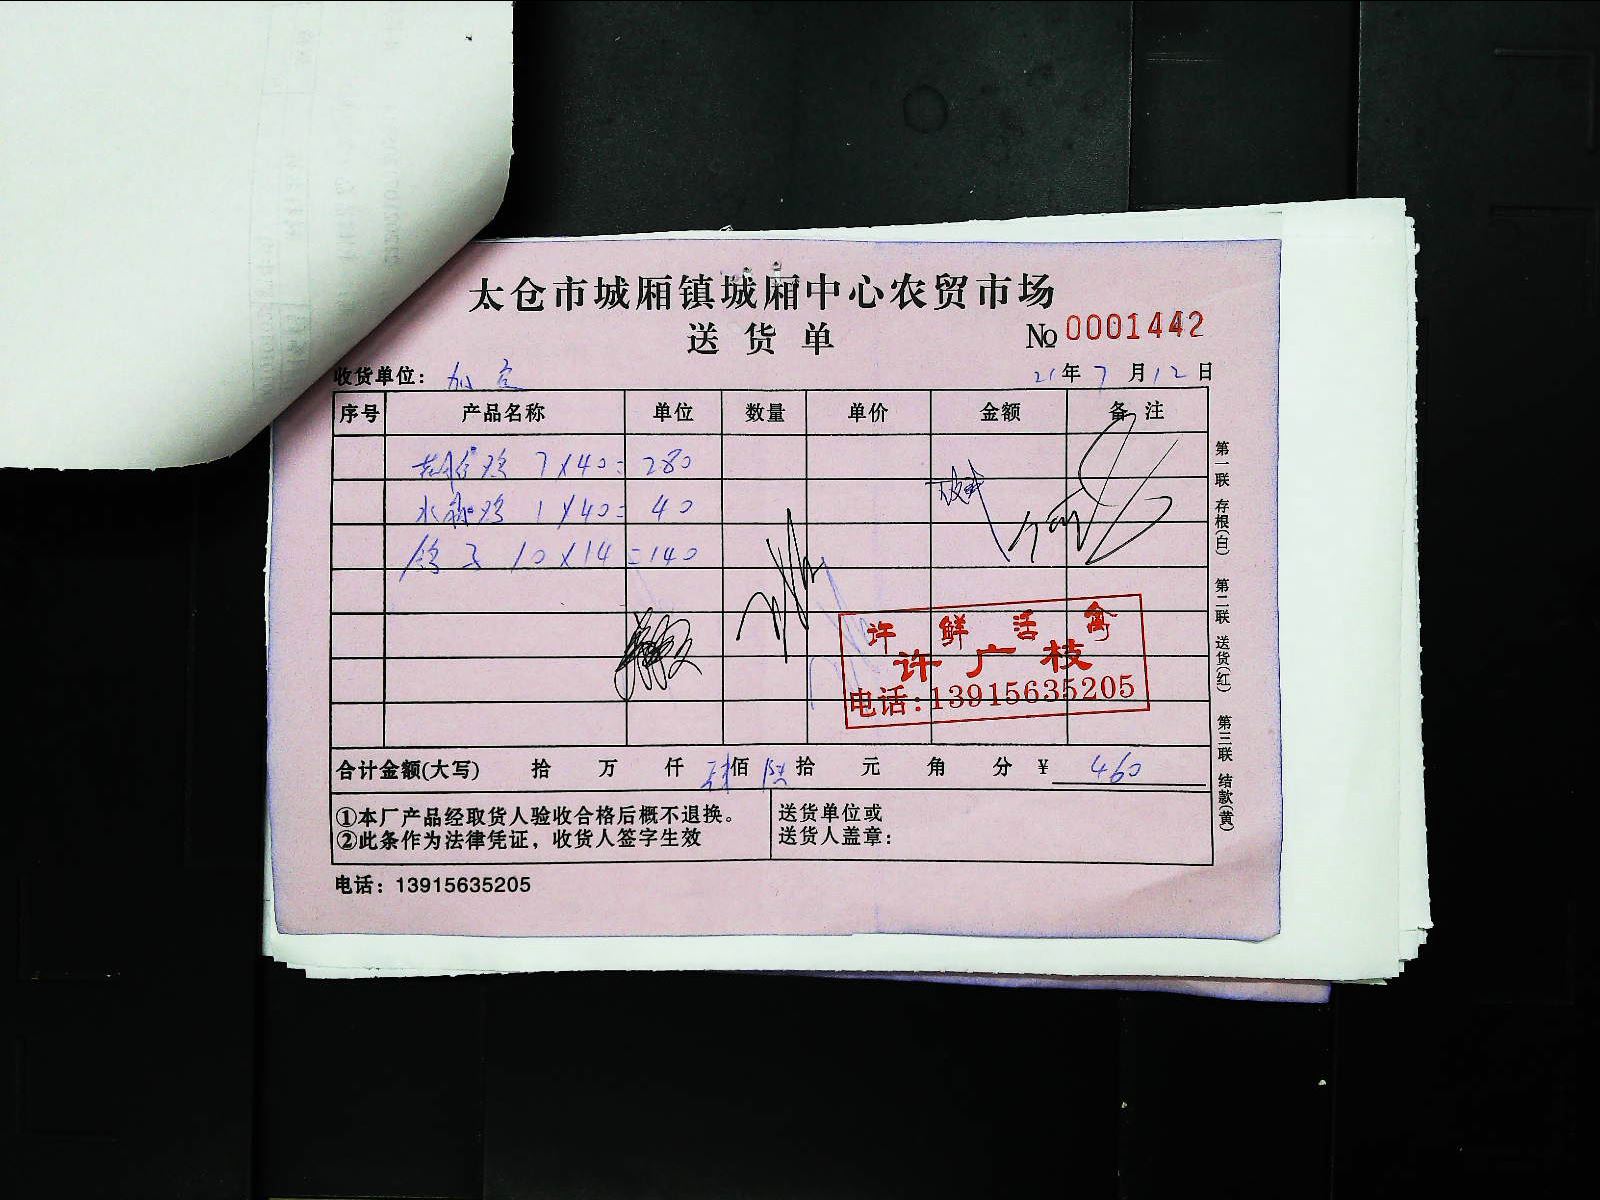 太仓市城厢镇城厢中心农贸市场
送货单
№ 0001442
收货单位：
21年7月12日
序号 产品名称 单位 数量 单价 金额 备注
鸡 7×40=280
水 鸡 1×40=40
鸽子 10×14=140
许鲜活禽
许广枝
电话:13915635205
合计金额(大写) 拾 万 仟 肆佰 陆拾 元 角 分 ¥ 460
①本厂产品经取货人验收合格后概不退换。
②此条作为法律凭证，收货人签字生效
送货单位或
送货人盖章：
电话：13915635205
第一联 存根(白) 第二联 送货(红) 第三联 结款(黄)